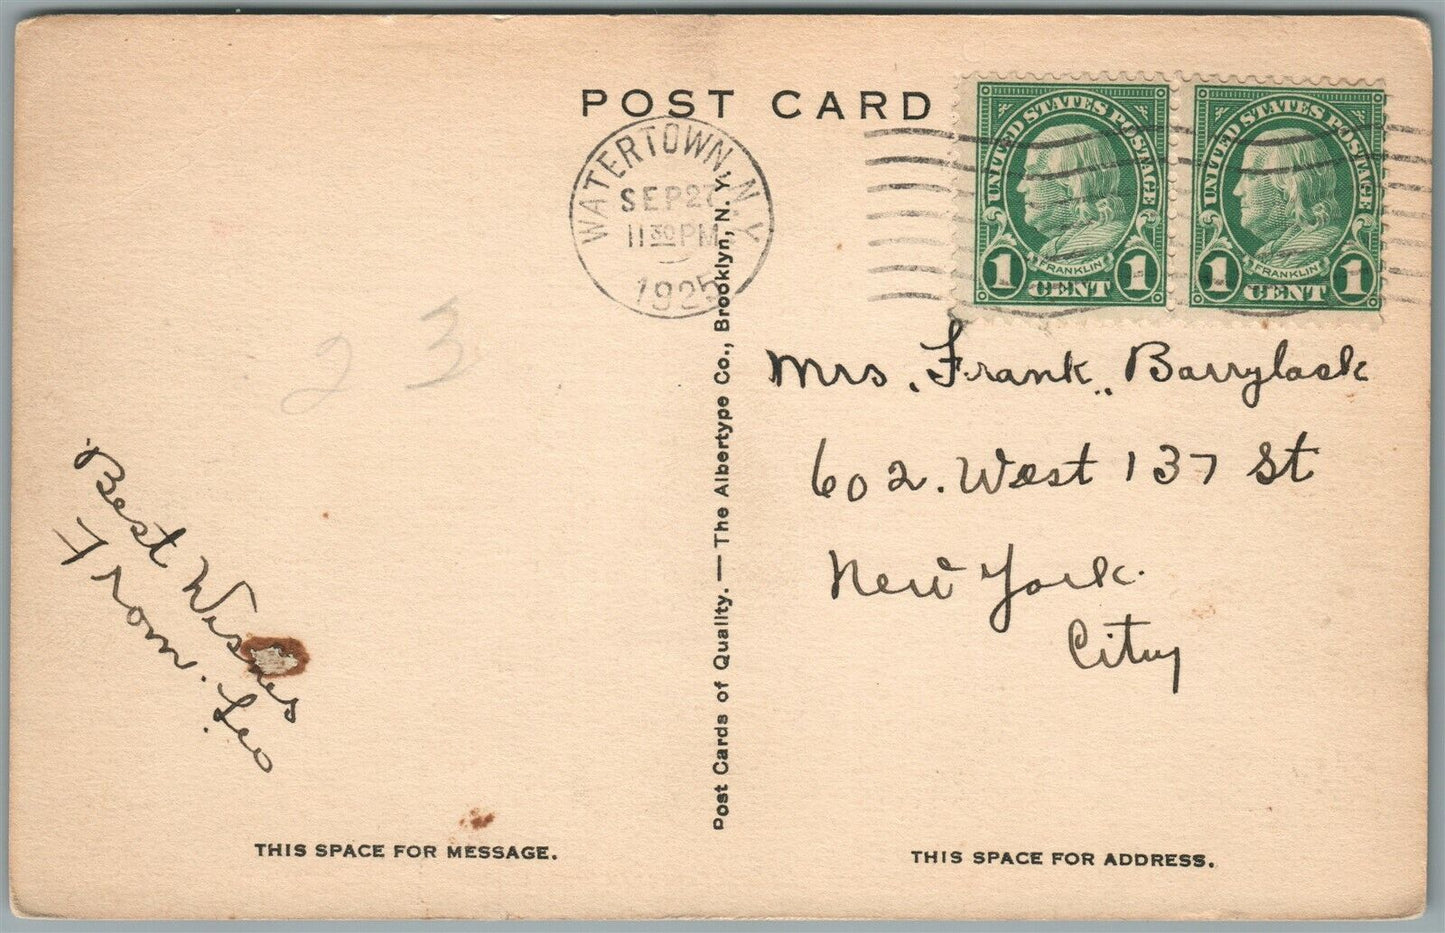 POST CARD
WATERTOWN, N.Y.
SEP 27
11 30 PM
1925
UNITED STATES POSTAGE
FRANKLIN
1 CENT 1
UNITED STATES POSTAGE
FRANKLIN
1 CENT 1
23
Best Wishes
From. Leo
Post Cards of Quality. — The Albertype Co., Brooklyn, N. Y.
Mrs. Frank.. Barrylack
602. West 137 St
New York.
City
THIS SPACE FOR MESSAGE.
THIS SPACE FOR ADDRESS.